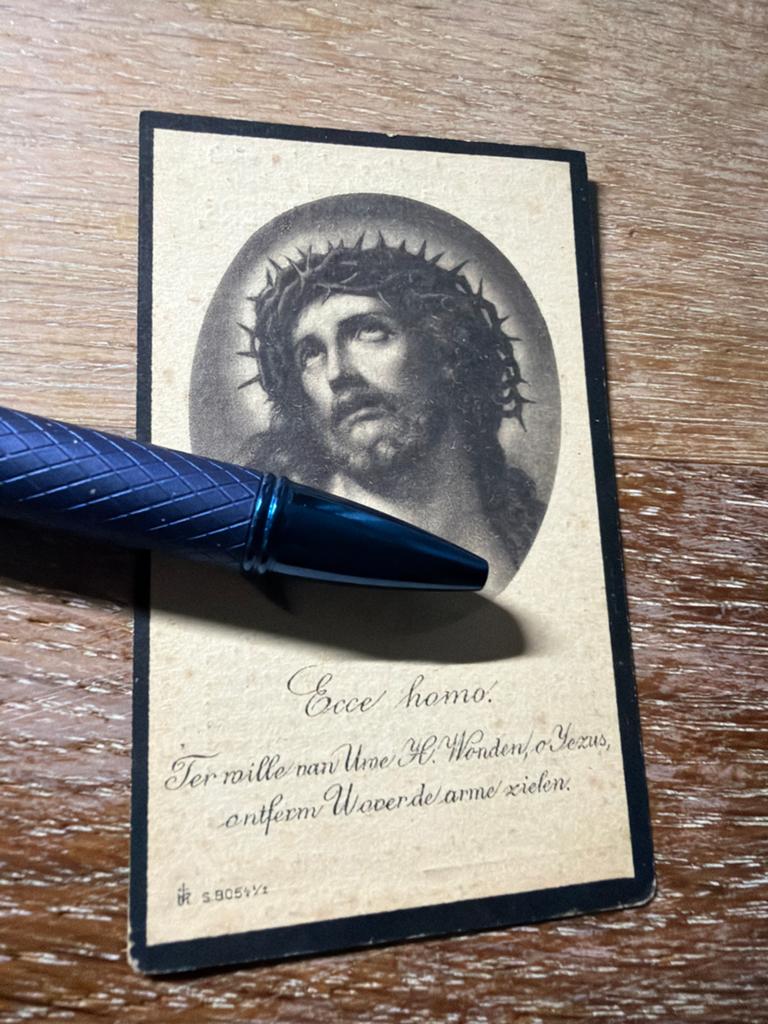 Ecce homo.
Ter wille van Uwe H. Wonden, o Jezus,
ontferm U over de arme zielen.
S. 8054½